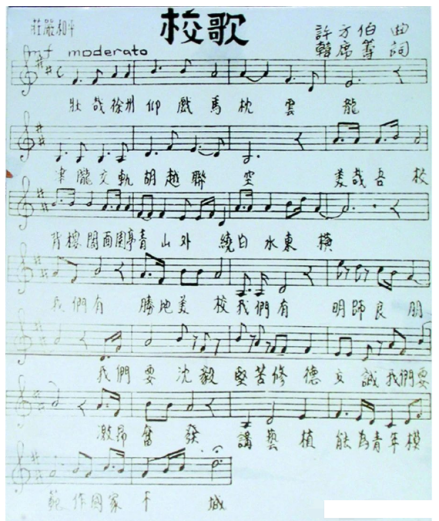 校歌
莊嚴和平
許方伯 曲
mf moderato
韓席籌 詞
壯哉徐州仰戲馬枕雲龍
車隴交軌胡越聯空 美哉吾校
背檬閣面關亭青山外 繞白水東橫
我們有 勝地美校我們有 明師良朋
我們要沈毅堅苦修德立誠我們要
激昂奮發 講藝植能為青年模
範作國家干城